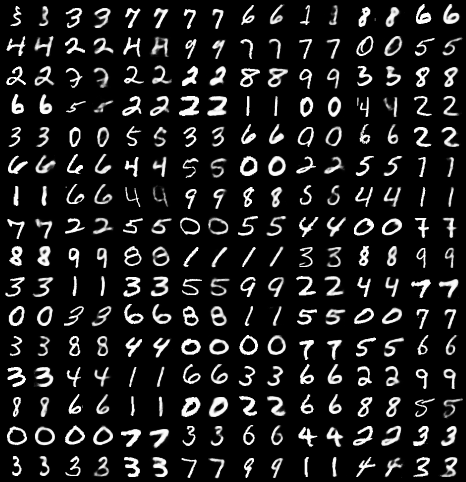 3 3 3 3 7 7 7 7 6 6 1 1 8 8 6 6
4 4 2 2 4 4 9 9 7 7 7 7 0 0 5 5
2 2 7 7 2 2 2 2 8 8 9 9 3 3 8 8
6 6 5 5 2 2 2 2 1 1 0 0 4 4 2 2
3 3 0 0 5 5 3 3 6 6 0 0 6 6 2 2
6 6 6 6 4 4 5 5 0 0 2 2 5 5 1 1
1 1 6 6 4 4 9 9 8 8 5 5 4 4 1 1
7 7 2 2 5 5 0 0 5 5 4 4 0 0 7 7
8 8 9 9 8 8 1 1 1 1 3 3 8 8 9 9
3 3 1 1 3 3 5 5 9 9 2 2 4 4 7 7
0 0 3 3 6 6 8 8 1 1 5 5 0 0 7 7
3 3 8 8 4 4 0 0 0 0 7 7 5 5 6 6
3 3 4 4 1 1 6 6 3 3 6 6 2 2 9 9
8 8 6 6 1 1 0 0 2 2 6 6 8 8 5 5
0 0 0 0 7 7 3 3 6 6 4 4 2 2 3 3
3 3 3 3 3 3 7 7 9 9 1 1 4 4 3 8